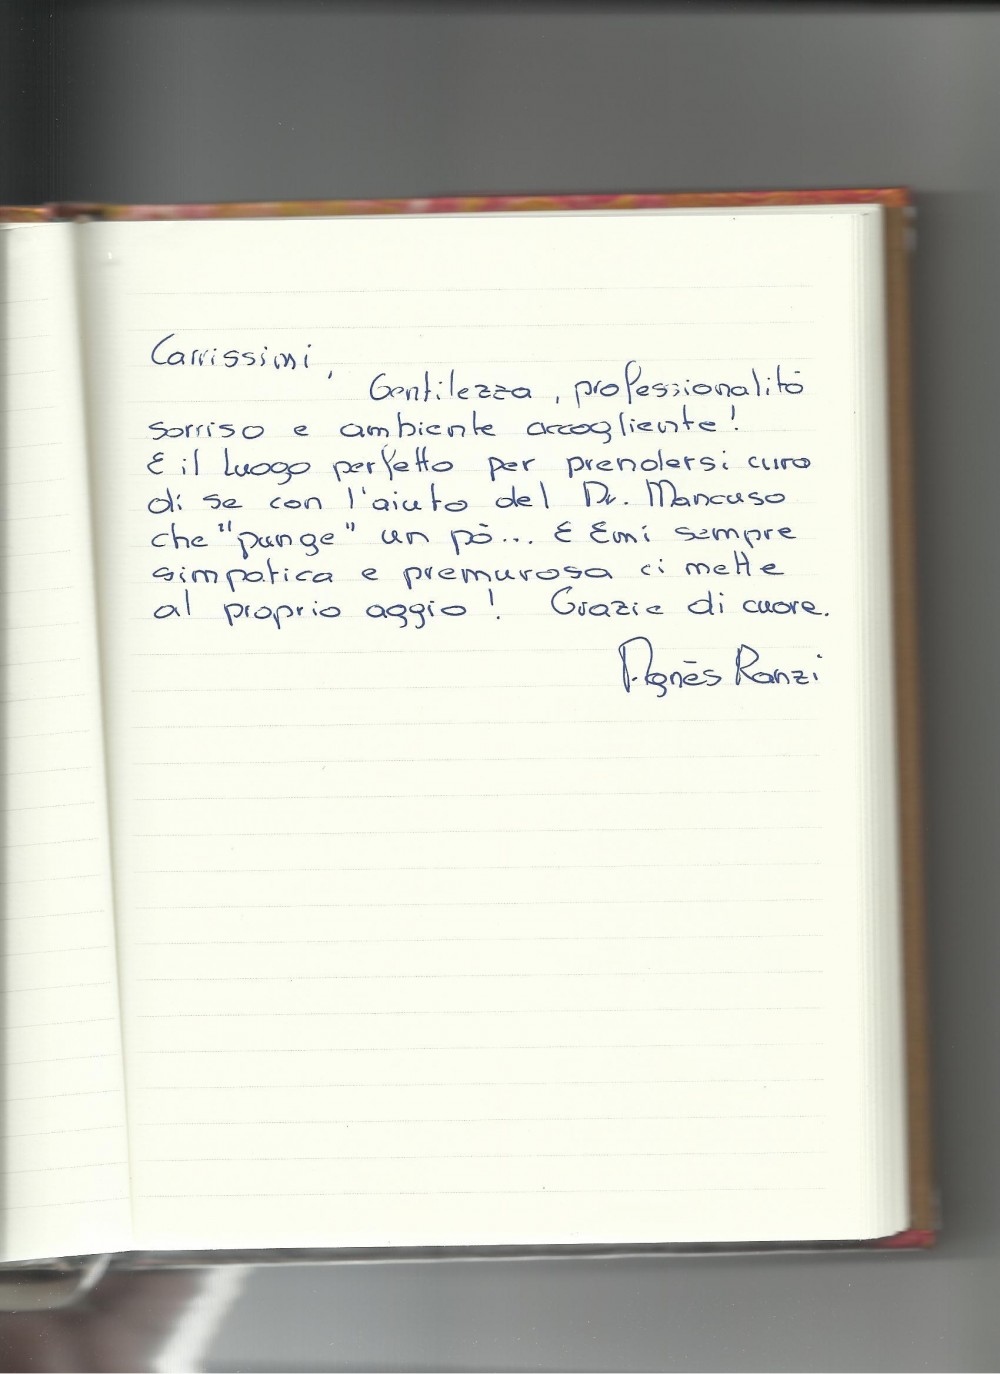 Carrissimi,
Gentilezza, professionalità
sorriso e ambiente accogliente!
E il luogo perfetto per prendersi cura
di se con l'aiuto del Dr. Mancuso
che "punge" un pò... E Emi sempre
simpatica e premurosa ci mette
al proprio aggio! Grazie di cuore.
Agnès Ranzi